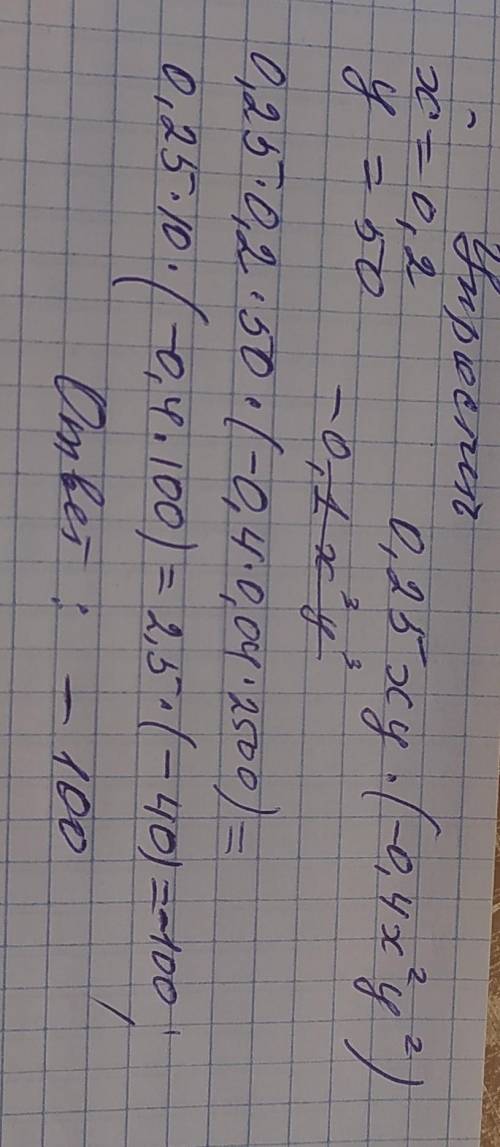 Упростить
x = 0,2
y = 50
0,25xy · (-0,4x²y²)
-0,1x³y³
0,25·0,2·50·(-0,4·0,04·2500)=
0,25·10·(-0,4·100)=2,5·(-40)=-100.
Ответ: -100